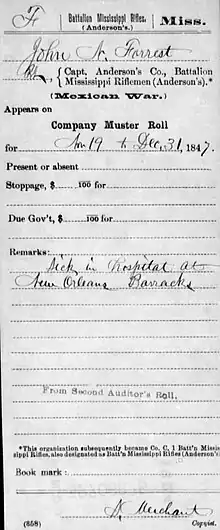 F | Battalion Mississippi Rifles. (Anderson's.) | Miss.
John N. Forrest
Pt, Capt. Anderson's Co., Battalion
Mississippi Riflemen (Anderson's).*
(Mexican War.)
Appears on
Company Muster Roll
for Nov 19 to Dec. 31, 1847.
Present or absent
Stoppage, $ 100 for
Due Gov't, $ 100 for
Remarks:
Sick in Hospital at
New Orleans Barracks
From Second Auditor's Roll.
*This organization subsequently became Co. C, 1 Batt'n Missis-
sippi Rifles, also designated as Batt'n Mississippi Rifles (Anderson's)
Book mark:
Merchant
(858) Copyist.